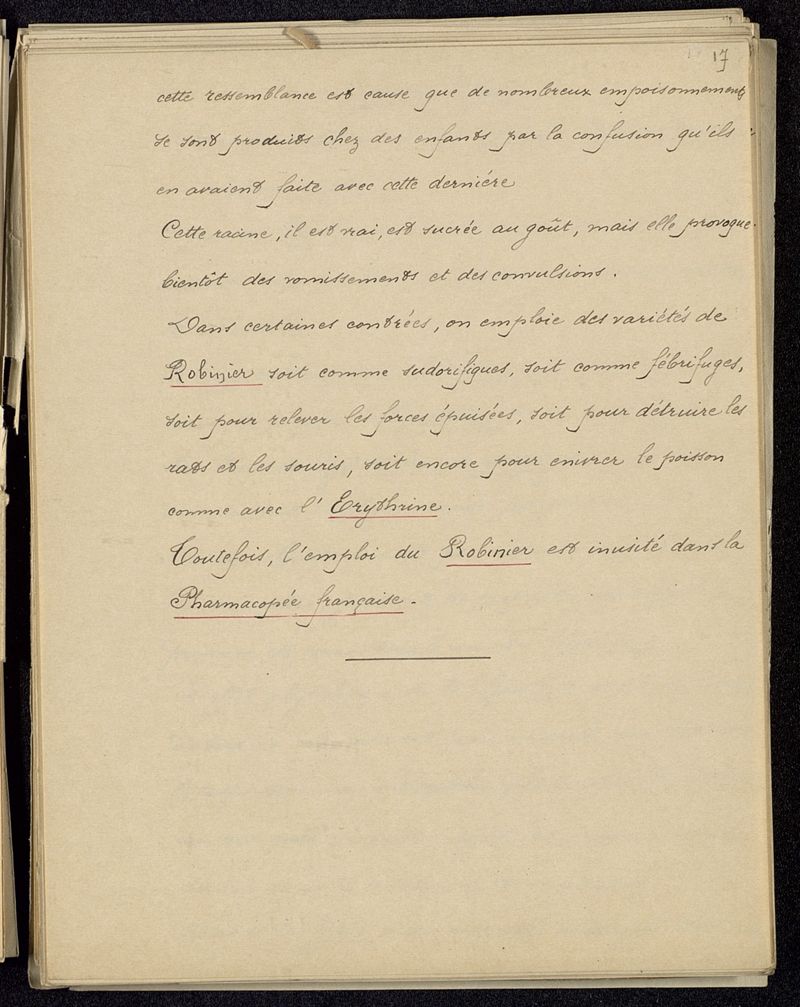 17
cette ressemblance est cause que de nombreux empoisonnements
se sont produits chez des enfants par la confusion qu'ils
en avaient faite avec cette dernière
Cette racine, il est vrai, est sucrée au goût, mais elle provoque
bientôt des vomissements et des convulsions.
Dans certaines contrées, on emploie des variétés de
Robinier soit comme sudorifiques, soit comme fébrifuges,
soit pour relever les forces épuisées, soit pour détruire les
rats et les souris, soit encore pour enivrer le poisson
comme avec l'Erythrine.
Toutefois, l'emploi du Robinier est inusité dans la
Pharmacopée française.